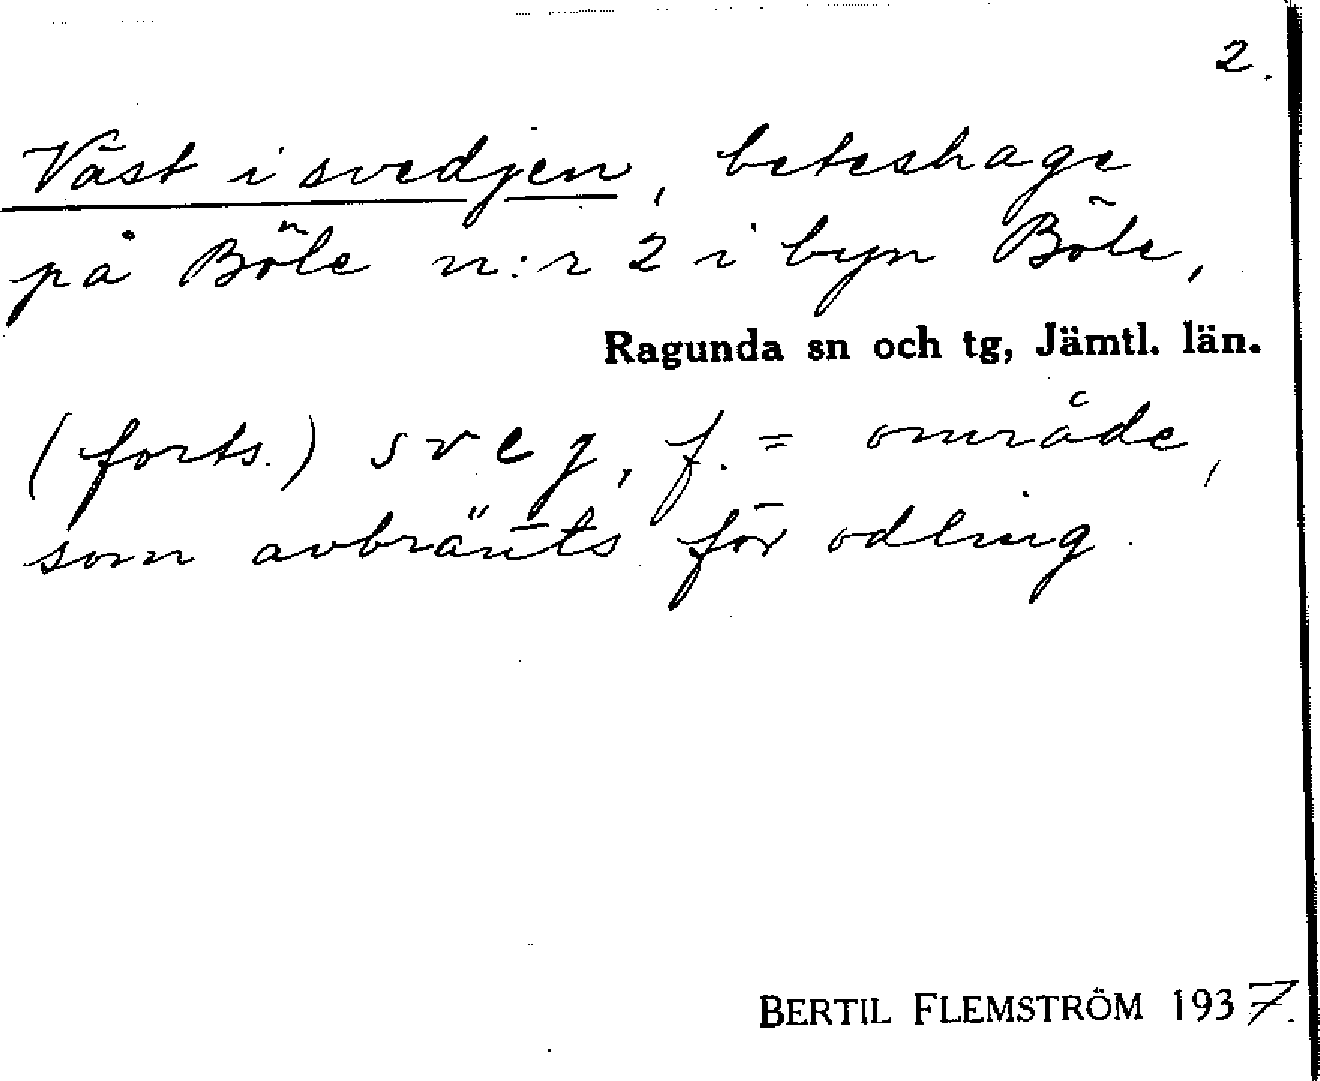 2.
Väst i svedjen, beteshage
på Böle n:r 2 i byn Böle,
Ragunda sn och tg, Jämtl. län.
(forts.) sveg, f. = område,
som avbränts för odling.
BERTIL FLEMSTRÖM 1937.